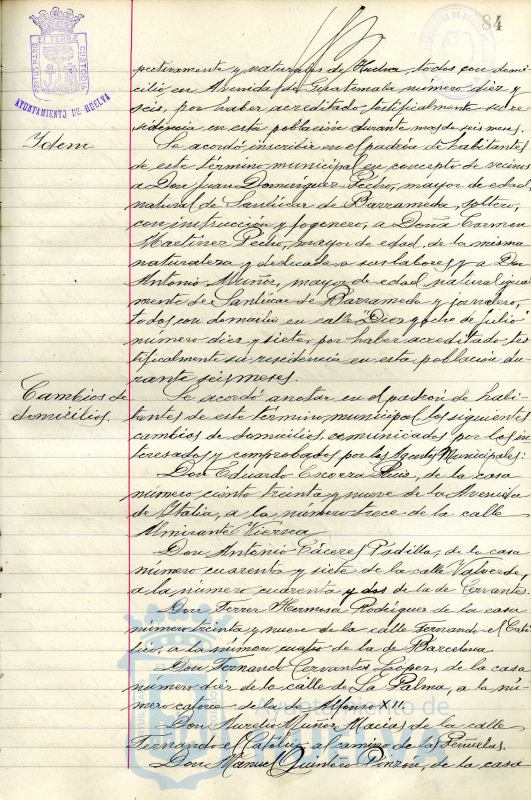 84
PORTUS MARIS ET TERRAE CUSTODIA
AYUNTAMIENTO DE HUELVA
pectivamente y naturales de Huelva, todos con domi-
cilio en Avenida de Guatemala número diez y
seis, por haber acreditado testificalmente su re-
sidencia en esta población durante mas de seis meses.
Idem
Se acordó inscribir en el padrón de habitantes
de este término municipal en concepto de vecinos
a Don Juan Dominguez Pecho, mayor de edad,
natural de Sanlúcar de Barrameda, soltero,
con instrucción y fogonero, a Doña Carmen
Martinez Pecho, mayor de edad, de la misma
naturaleza y dedicada a sus labores y a Don
Antonio Muñoz, mayor de edad natural igual-
mente de Sanlúcar de Barrameda y jornalero,
todos con domicilio en calle "Diez y ocho de Julio"
número diez y siete, por haber acreditado tes-
tificalmente su residencia en esta población du-
rante seis meses.
Cambios de
domicilios.
Se acordó anotar en el padrón de habi-
tantes de este término municipal los siguientes
cambios de domicilios, comunicados por los in-
teresados y comprobados por los Agentes Municipales:
Don Eduardo Ruiz, de la casa
número ciento treinta y nueve de la Avenida
de Italia, a la número trece de la calle
Almirante
Don Antonio Cáceres Padilla, de la casa
número cuarenta y siete de la calle Valverde,
a la número cuarenta y dos de la de Cervantes.
Don Ferrer Hermosa Rodriguez de la casa
número treinta y nueve de la calle Fernando el Cató-
lico, a la número cuatro de la de Barcelona
Don Fernando Cervantes López, de la casa
número diez de la calle de La Palma, a la nú-
mero catorce de la de Alfonso XII.
Don Aurelio Muñoz Macias, de la calle
Fernando el Católico, al camino de las Peñuelas.
Don Manuel Quintero Pinzón, de la casa
Ayuntamiento de
HUELVA